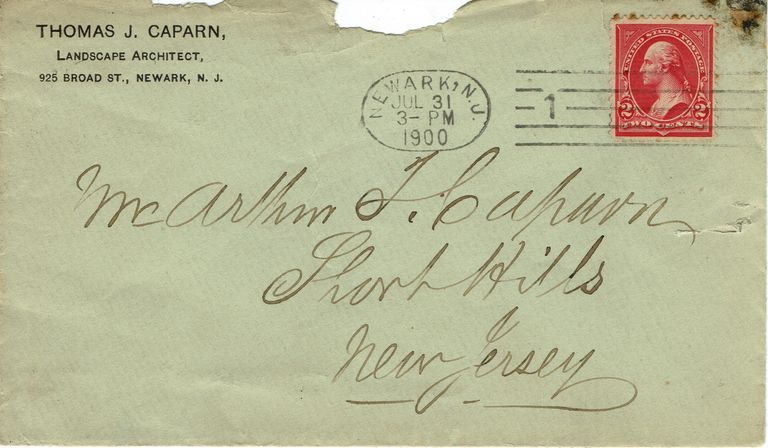 THOMAS J. CAPARN,
LANDSCAPE ARCHITECT,
925 BROAD ST., NEWARK, N. J.
NEWARK, N.J.
JUL 31
3- PM
1900
1
UNITED STATES POSTAGE
2 2
TWO CENTS
Mr Arthur T. Caparn
Short Hills
New Jersey